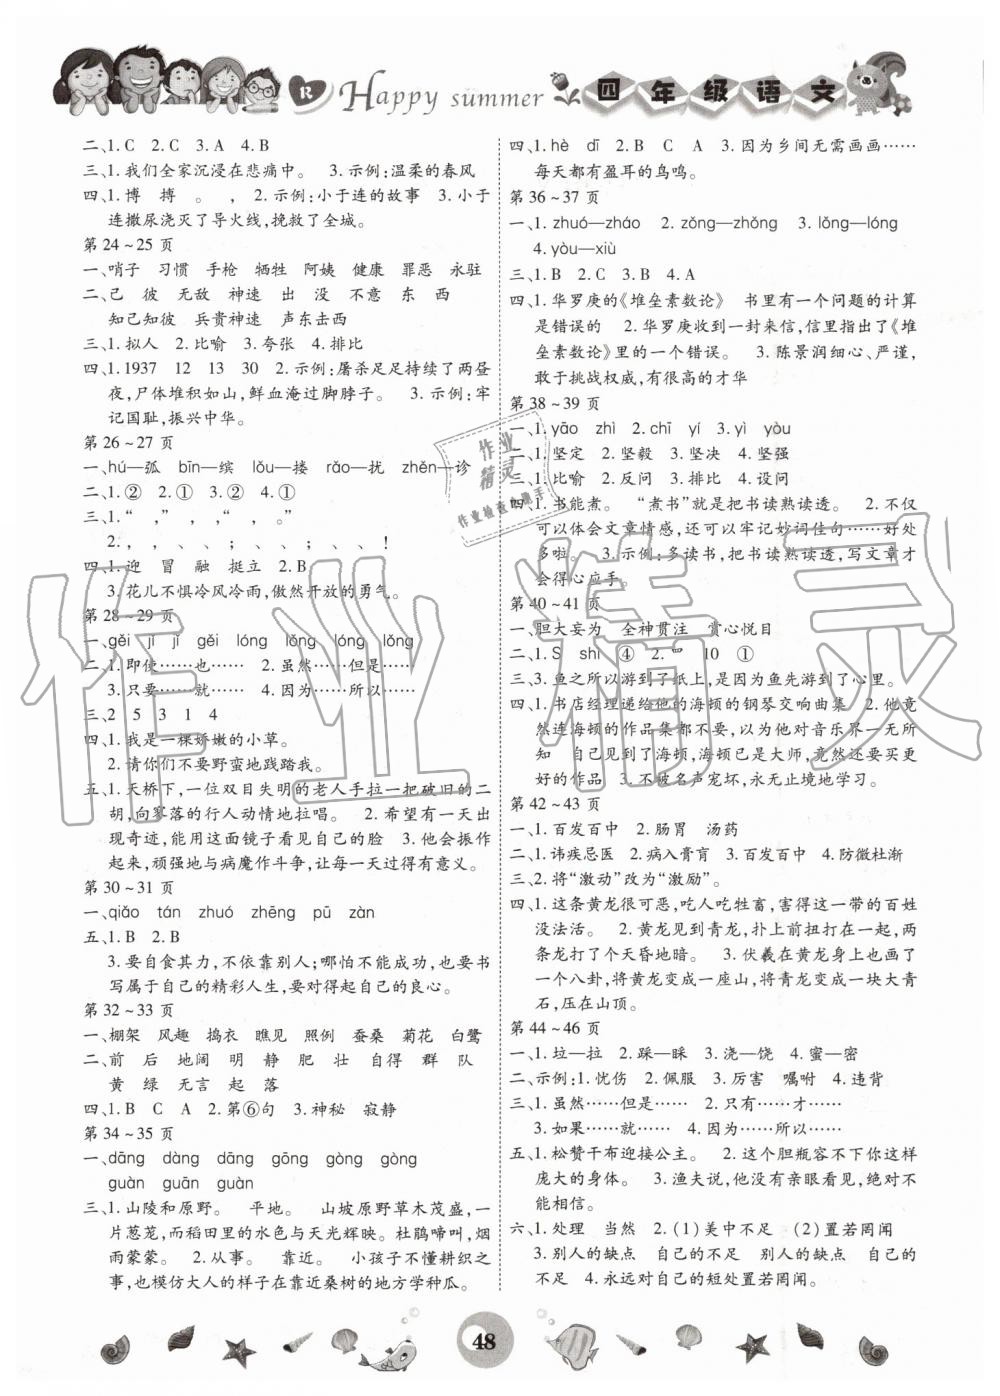 R Happy summer 四年级语文
二、1. C  2. C  3. A  4. B
三、1. 我们全家沉浸在悲痛中。  3. 示例:温柔的春风
四、1. 博  搏  。  ,  2. 示例:小于连的故事  3. 小于
连撒尿浇灭了导火线,挽救了全城。
第 24～25 页
一、哨子  习惯  手枪  牺牲  阿姨  健康  罪恶  永驻
二、己  彼  无敌  神速  出  没  不意  东  西
知己知彼  兵贵神速  声东击西
三、1. 拟人  2. 比喻  3. 夸张  4. 排比
四、1. 1937  12  13  30  2. 示例:屠杀足足持续了两昼
夜,尸体堆积如山,鲜血淹过脚脖子。  3. 示例:牢
记国耻,振兴中华。
第 26～27 页
一、hú—孤  bīn—缤  lǒu—搂  rǎo—扰  zhěn—诊
二、1. ②  2. ①  3. ②  4. ①
三、1. “  ,”  ,  ,“  ,  。”
2. ,  ,  、  、  ;  、  、  ;  、  、  !
四、1. 迎  冒  融  挺立  2. B
3. 花儿不惧冷风冷雨,傲然开放的勇气。
第 28～29 页
一、gěi  jǐ  jǐ  gěi  lóng  lǒng  lóng  lǒng
二、1. 即使……也……  2. 虽然……但是……
3. 只要……就……  4. 因为……所以……
三、2  5  3  1  4
四、1. 我是一棵娇嫩的小草。
2. 请你们不要野蛮地践踏我。
五、1. 天桥下,一位双目失明的老人手拉一把破旧的二
胡,向寥落的行人动情地拉唱。  2. 希望有一天出
现奇迹,能用这面镜子看见自己的脸  3. 他会振作
起来,顽强地与病魔作斗争,让每一天过得有意义。
第 30～31 页
一、qiǎo  tán  zhuó  zhēng  pū  zàn
五、1. B  2. B
3. 要自食其力,不依靠别人;哪怕不能成功,也要书
写属于自己的精彩人生,要对得起自己的良心。
第 32～33 页
一、棚架  风趣  捣衣  瞧见  照例  蚕桑  菊花  白鹭
二、前  后  地阔  明  静  肥  壮  自得  群  队
黄  绿  无言  起  落
四、1. B  C  A  2. 第⑥句  3. 神秘  寂静
第 34～35 页
一、dāng  dàng  dāng  gōng  gòng  gòng
guàn  guān  guàn
三、1. 山陵和原野。  平地。  山坡原野草木茂盛,一
片葱茏,而稻田里的水色与天光辉映。杜鹃啼叫,烟
雨蒙蒙。  2. 从事。  靠近。  小孩子不懂耕织之
事,也模仿大人的样子在靠近桑树的地方学种瓜。
四、1. hè  dī  2. B  C  A  3. 因为乡间无需画画……
每天都有盈耳的鸟鸣。
第 36～37 页
一、1. zhuó—zháo  2. zǒng—zhǒng  3. lǒng—lóng
4. yòu—xiù
三、1. B  2. C  3. B  4. A
四、1. 华罗庚的《堆垒素数论》  书里有一个问题的计算
是错误的  2. 华罗庚收到一封来信,信里指出了《堆
垒素数论》里的一个错误。  3. 陈景润细心、严谨,
敢于挑战权威,有很高的才华
第 38～39 页
一、1. yāo  zhì  2. chī  yí  3. yì  yòu
二、1. 坚定  2. 坚毅  3. 坚决  4. 坚强
三、1. 比喻  2. 反问  3. 排比  4. 夸张
四、1. 书能煮。  “煮书”就是把书读熟读透。  2. 不仅
可以体会文章情感,还可以牢记妙词佳句……好处
多啦。  3. 示例:多读书,把书读熟读透,写文章才
会得心应手。
第 40～41 页
一、胆大妄为  全神贯注  赏心悦目
二、1. S  shi  ④  2. 罒  10  ①
三、3. 鱼之所以游到了纸上,是因为鱼先游到了心里。
四、1. 书店经理递给他的海顿的钢琴交响曲集  2. 他竟
然连海顿的作品集都不要,以为他对音乐界一无所
知  自己见到了海顿,海顿已是大师,竟然还要买更
好的作品  3. 不被名声宠坏,永无止境地学习。
第 42～43 页
一、1. 百发百中  2. 肠胃  汤药
二、1. 讳疾忌医  2. 病入膏肓  3. 百发百中  4. 防微杜渐
三、2. 将“激动”改为“激励”。
四、1. 这条黄龙很可恶,吃人吃牲畜,害得这一带的百姓
没法活。  2. 黄龙见到青龙,扑上前扭打在一起,两
条龙打了个天昏地暗。  3. 伏羲在黄龙身上也画了
一个八卦,将黄龙变成一座山,将青龙变成一块大青
石,压在山顶。
第 44～46 页
一、1. 垃—拉  2. 踩—睬  3. 浇—饶  4. 蜜—密
二、示例:1. 忧伤  2. 佩服  3. 厉害  嘱咐  4. 违背
三、1. 虽然……但是……  2. 只有……才……
3. 如果……就……  4. 因为……所以……
五、1. 松赞干布迎接公主。  2. 这个胆瓶容不下你这样
庞大的身体。  3. 渔夫说,他没有亲眼看见,绝对不
能相信。
六、1. 处理  当然  2. (1)美中不足  (2)置若罔闻
3. 别人的缺点  自己的不足  别人的缺点  自己的
不足  4. 永远对自己的短处置若罔闻。
作业精灵
作业检查小助手
作业精灵
48